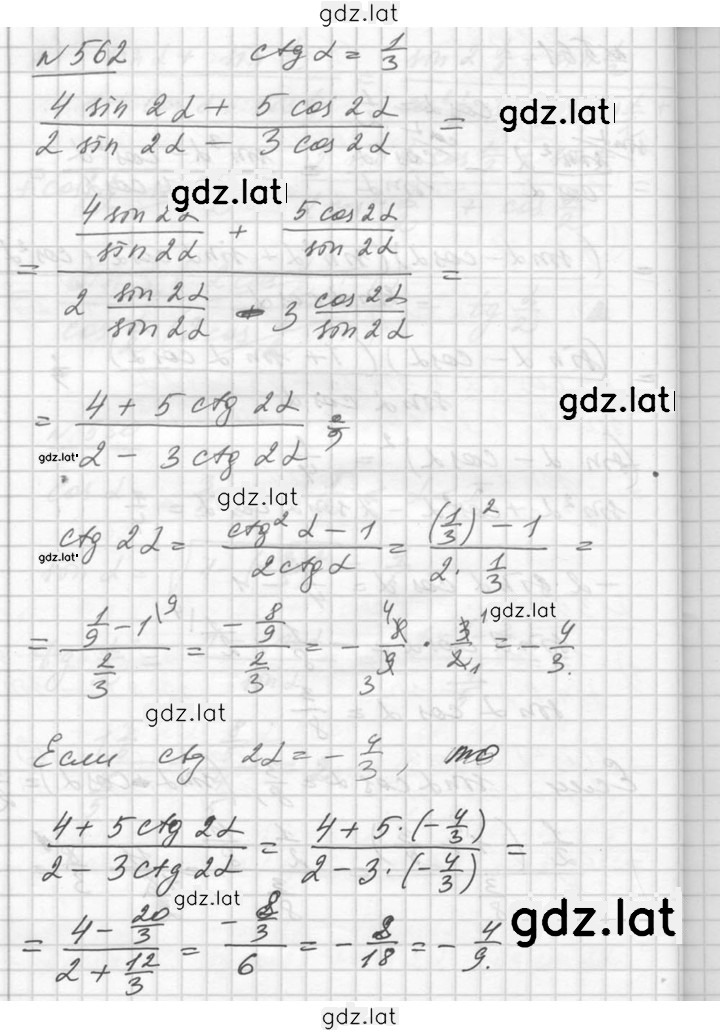 gdz.lat
№562 ctg α = 1/3
(4 sin 2α + 5 cos 2α)/(2 sin 2α − 3 cos 2α) = gdz.lat
gdz.lat
= (4 sin 2α/sin 2α + 5 cos 2α/sin 2α)/(2 sin 2α/sin 2α − 3 cos 2α/sin 2α) =
= (4 + 5 ctg 2α)/(2 − 3 ctg 2α) = gdz.lat
gdz.lat
gdz.lat
ctg 2α = (ctg² α − 1)/(2 ctg α) = ((1/3)² − 1)/(2 · 1/3) =
gdz.lat
gdz.lat
= (1/9 − 1\9)/(2/3) = (− 8/9)/(2/3) = − 8/9 · 3/2 = − 4/3.
gdz.lat
Если ctg 2α = − 4/3, то
(4 + 5 ctg 2α)/(2 − 3 ctg 2α) = (4 + 5 · (− 4/3))/(2 − 3 · (− 4/3)) =
gdz.lat
= (4 − 20/3)/(2 + 12/3) = (− 8/3)/6 = − 8/18 = − 4/9.
gdz.lat
gdz.lat